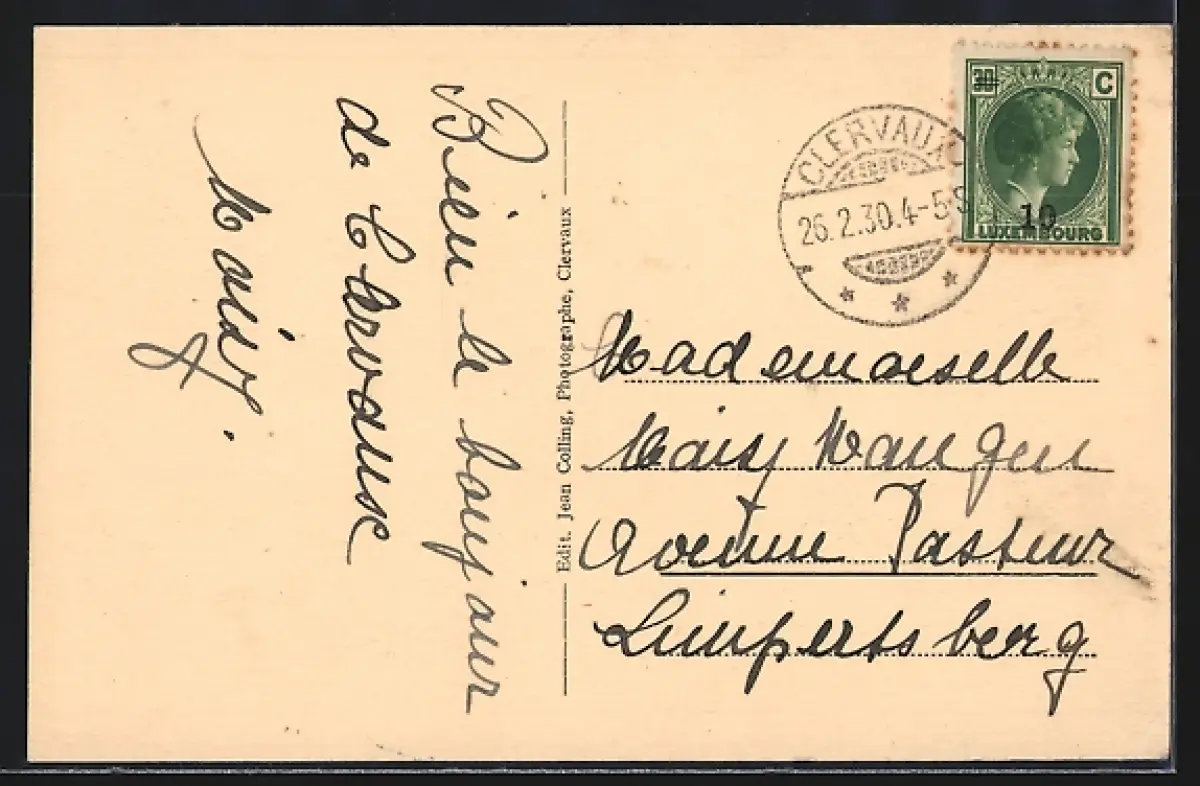 Bien le bonjour
de Clervaux
Maisy.
Edit. Jean Colling, Photographe, Clervaux
CLERVAUX
26.2.30.4-5 S
30 C
10
LUXEMBOURG
Mademoiselle
Maisy Mangen
Avenue Pasteur
Limpertsberg